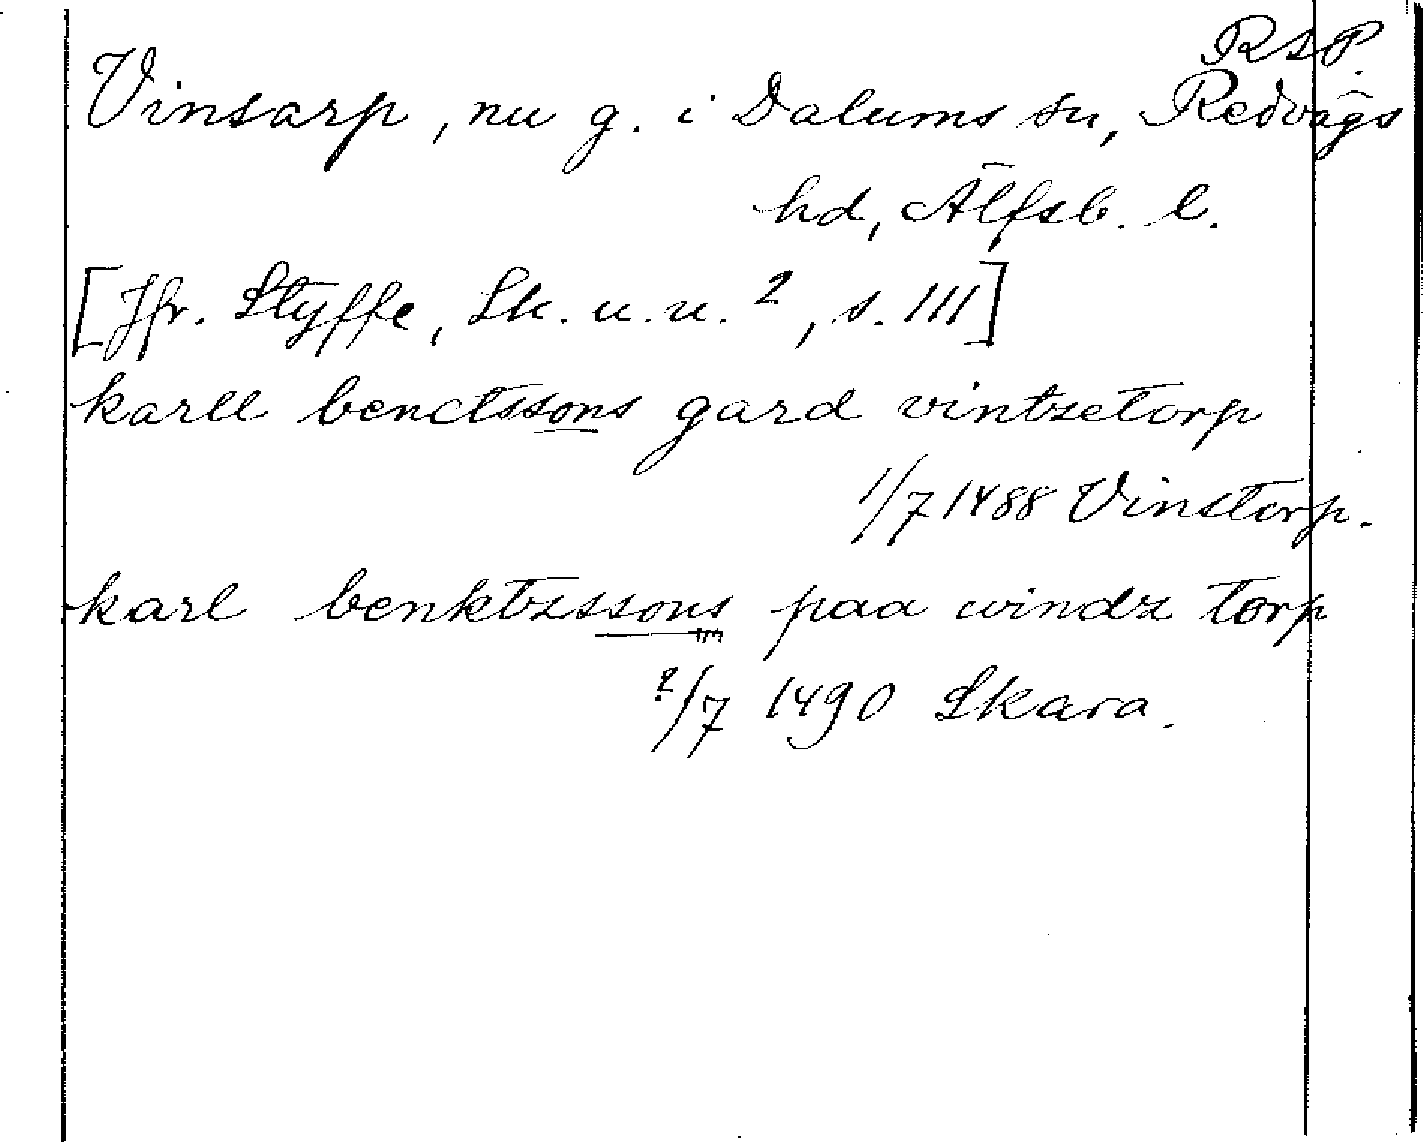 RAP.
Vinsarp, nu g. i Dalums sn, Redvägs
hd, Älfsb. l.
[Jfr. Styffe, Sk. u. u. ², s. 111]
karll benctssons gard vintzetorp
1/7 1488 Vinstorp.
karl benktzssons paa windz torp
2/7 1490 Skara.